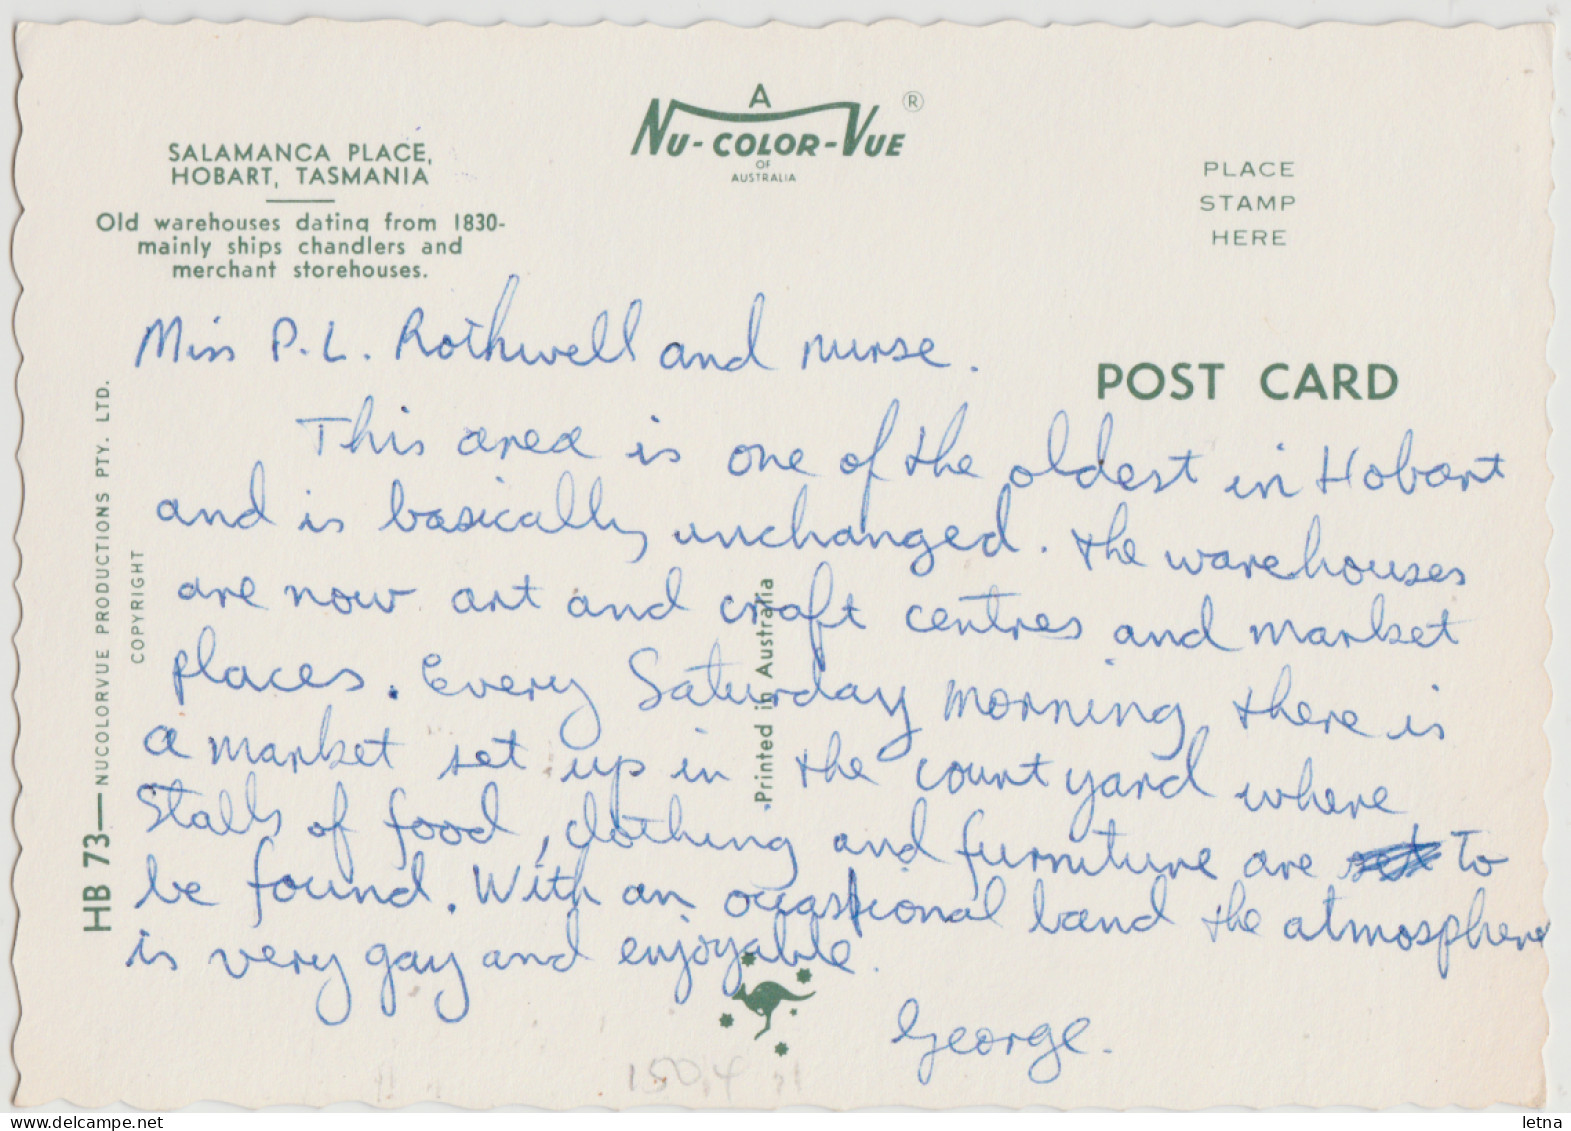 A
NU-COLOR-VUE ®
OF
AUSTRALIA
SALAMANCA PLACE,
HOBART, TASMANIA
Old warehouses dating from 1830-
mainly ships chandlers and
merchant storehouses.
PLACE
STAMP
HERE
POST CARD
Miss P.L. Rothwell and nurse.
This area is one of the oldest in Hobart
and is basically unchanged. The warehouses
are now art and craft centres and market
places. Every Saturday morning there is
a market set up in the courtyard where
Stalls of food, clothing and furniture are to
be found. With an occasional band the atmosphere
is very gay and enjoyable.
George.
HB 73—NUCOLORVUE PRODUCTIONS PTY. LTD.
COPYRIGHT
Printed in Australia
150,4
letna